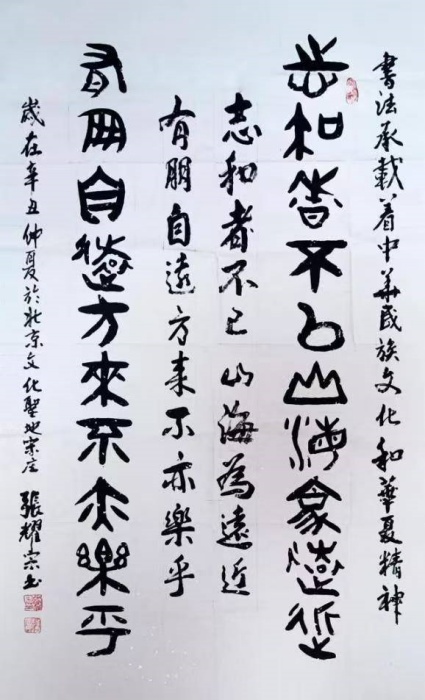 書法承載着中華民族文化和華夏精神
志和者不已山海為遠近
志和者不已山海為遠近
有朋自遠方来不亦樂乎
有朋自遠方來不亦樂乎
歲在辛丑仲夏於北京文化聖地宋庄 張耀宗书